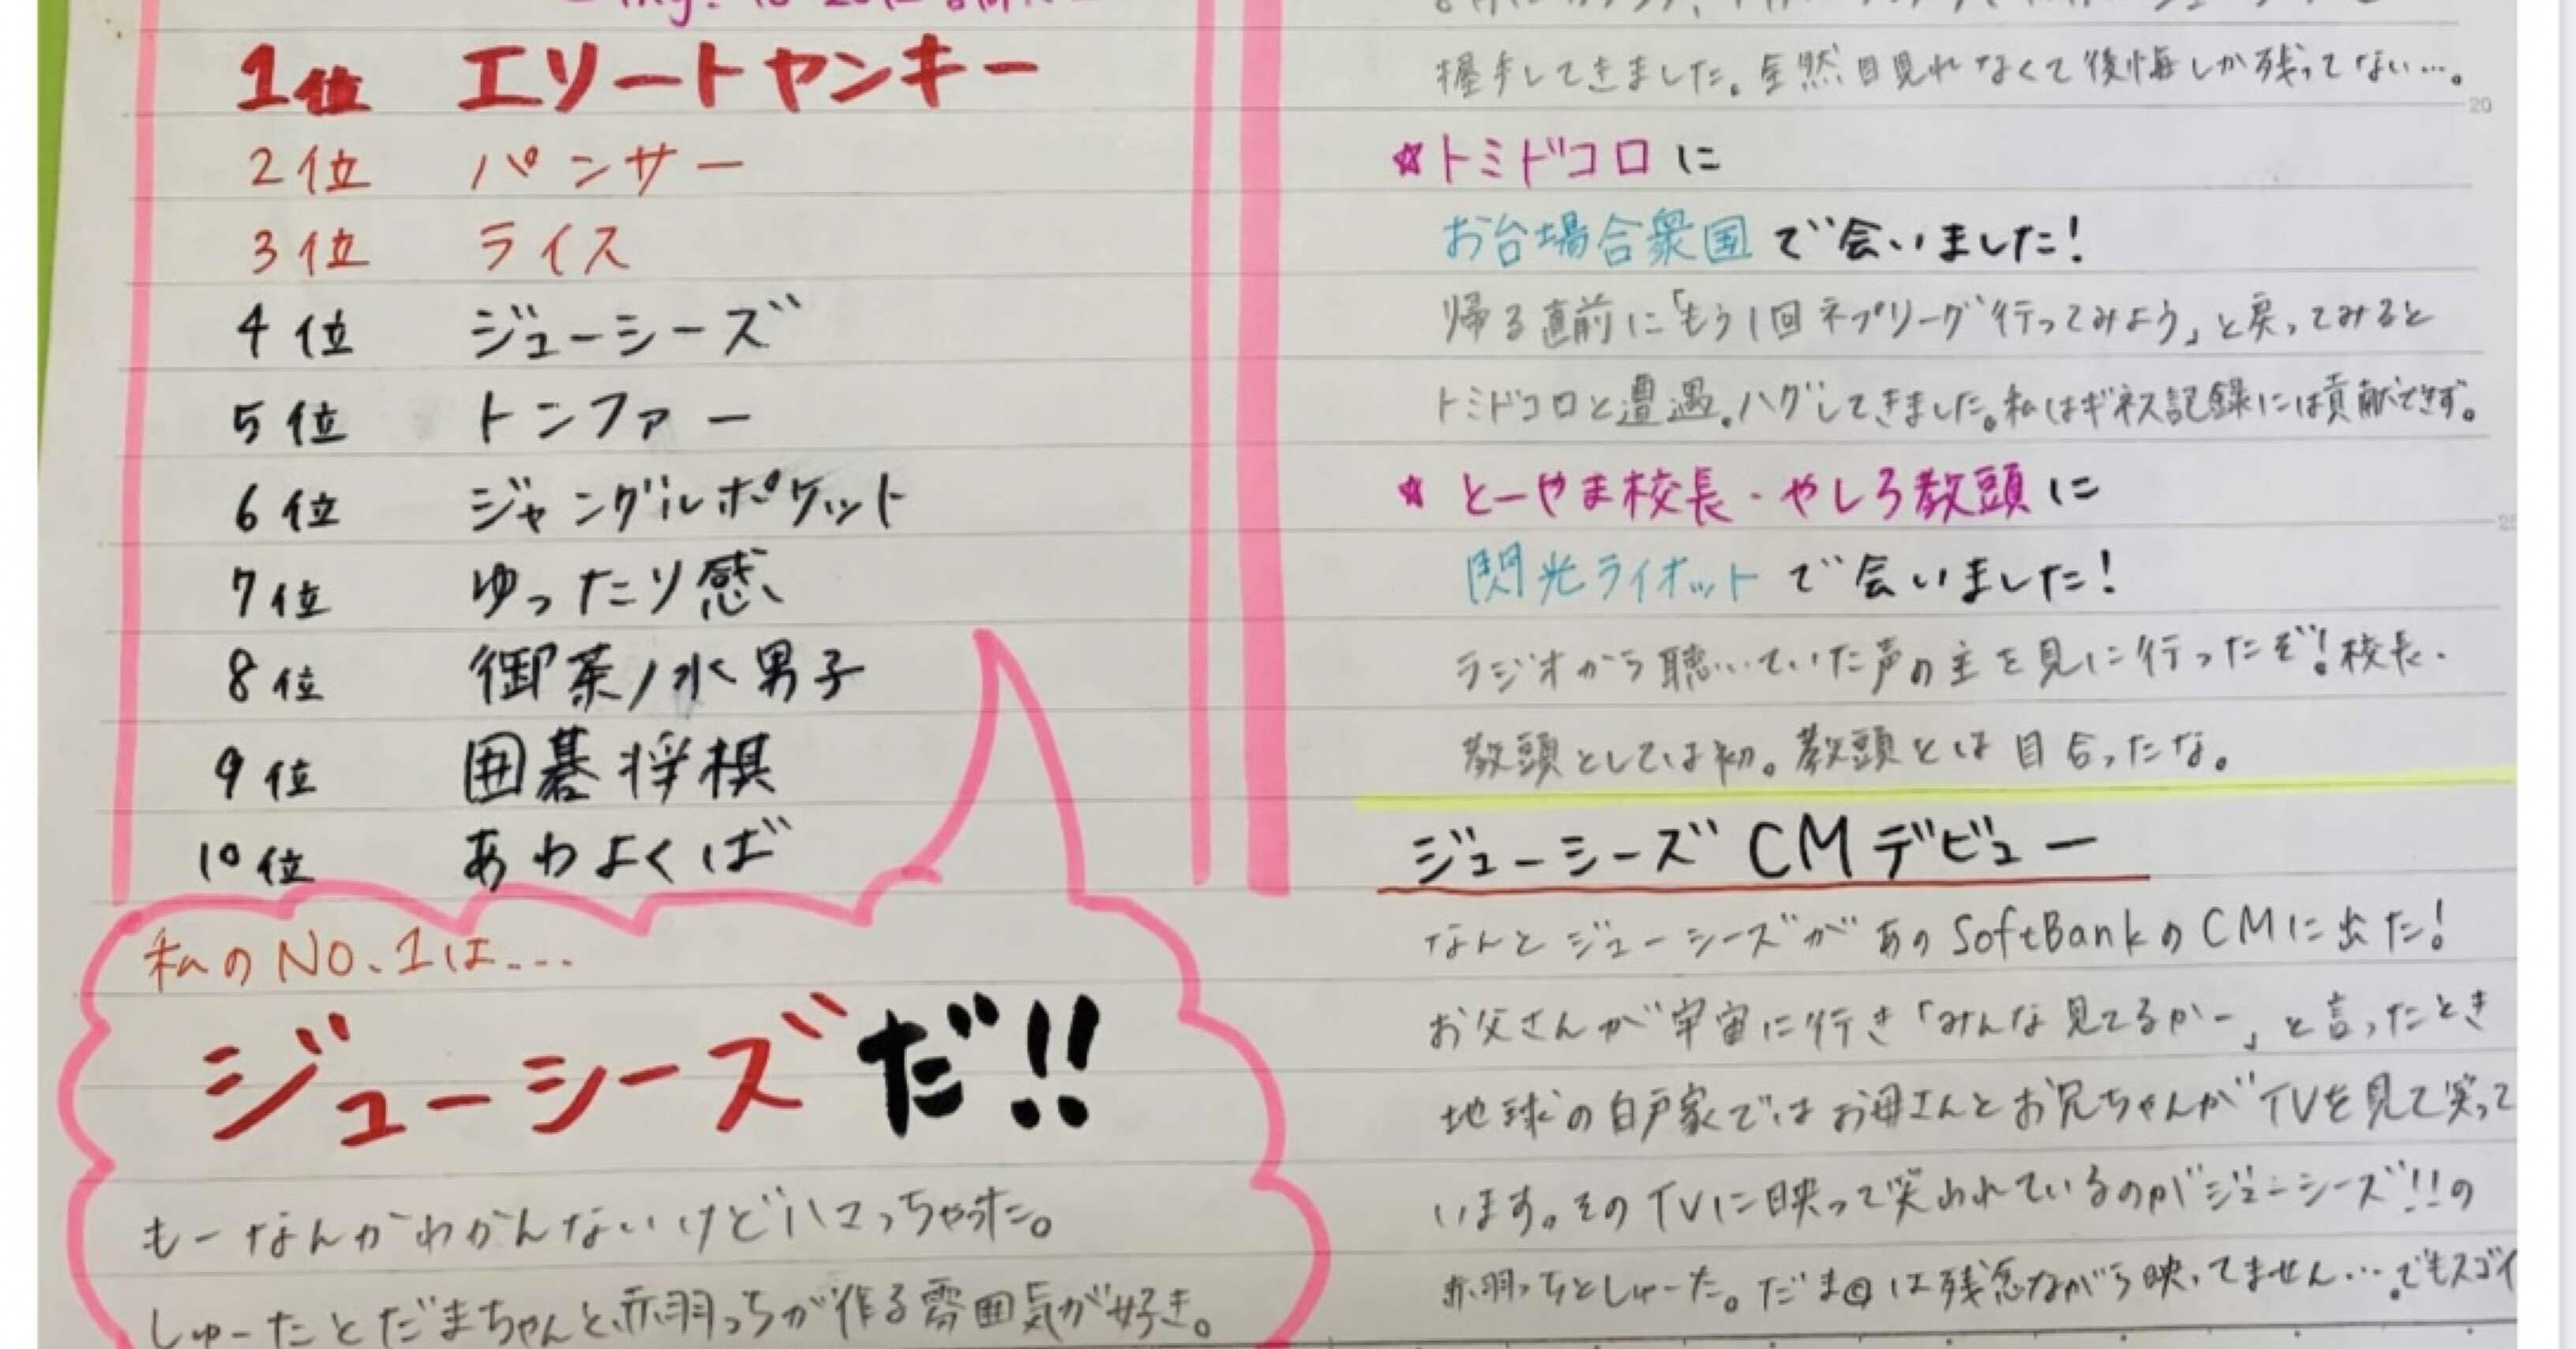 1位 エリートヤンキー
2位 パンサー
3位 ライス
4位 ジューシーズ
5位 トンファー
6位 ジャングルポケット
7位 ゆったり感
8位 御茶ノ水男子
9位 囲碁将棋
10位 あわよくば
私のNO.1は...
ジューシーズだ!!
もーなんかわかんないけどハマっちゃった。
しゅーたとだまちゃんと、赤羽っちが作る雰囲気が好き。
握手してきました。全然目見れなくて後悔しか残ってない…。
20
☆トミドコロに
お台場合衆国で会いました!
帰る直前に「もう1回ネプリーグ行ってみよう」と戻ってみると
トミドコロと遭遇。ハグしてきました。私はギネス記録には貢献できず。
☆とーやま校長・やしろ教頭に
閃光ライオットで会いました!
ラジオから聴いていた声の主を見に行ったぞ!校長・
教頭としては初。教頭とは目合ったな。
ジューシーズCMデビュー
なんとジューシーズがあのSoftBankのCMに出た!
お父さんが宇宙に行き「みんな見てるかー」と言ったとき
地球の白戸家ではお母さんとお兄ちゃんがTVを見て笑って
います。そのTVに映って笑われているのがジューシーズ!!の
赤羽っちとしゅーた。だま@は残念ながら映ってません…。でもスゴイ